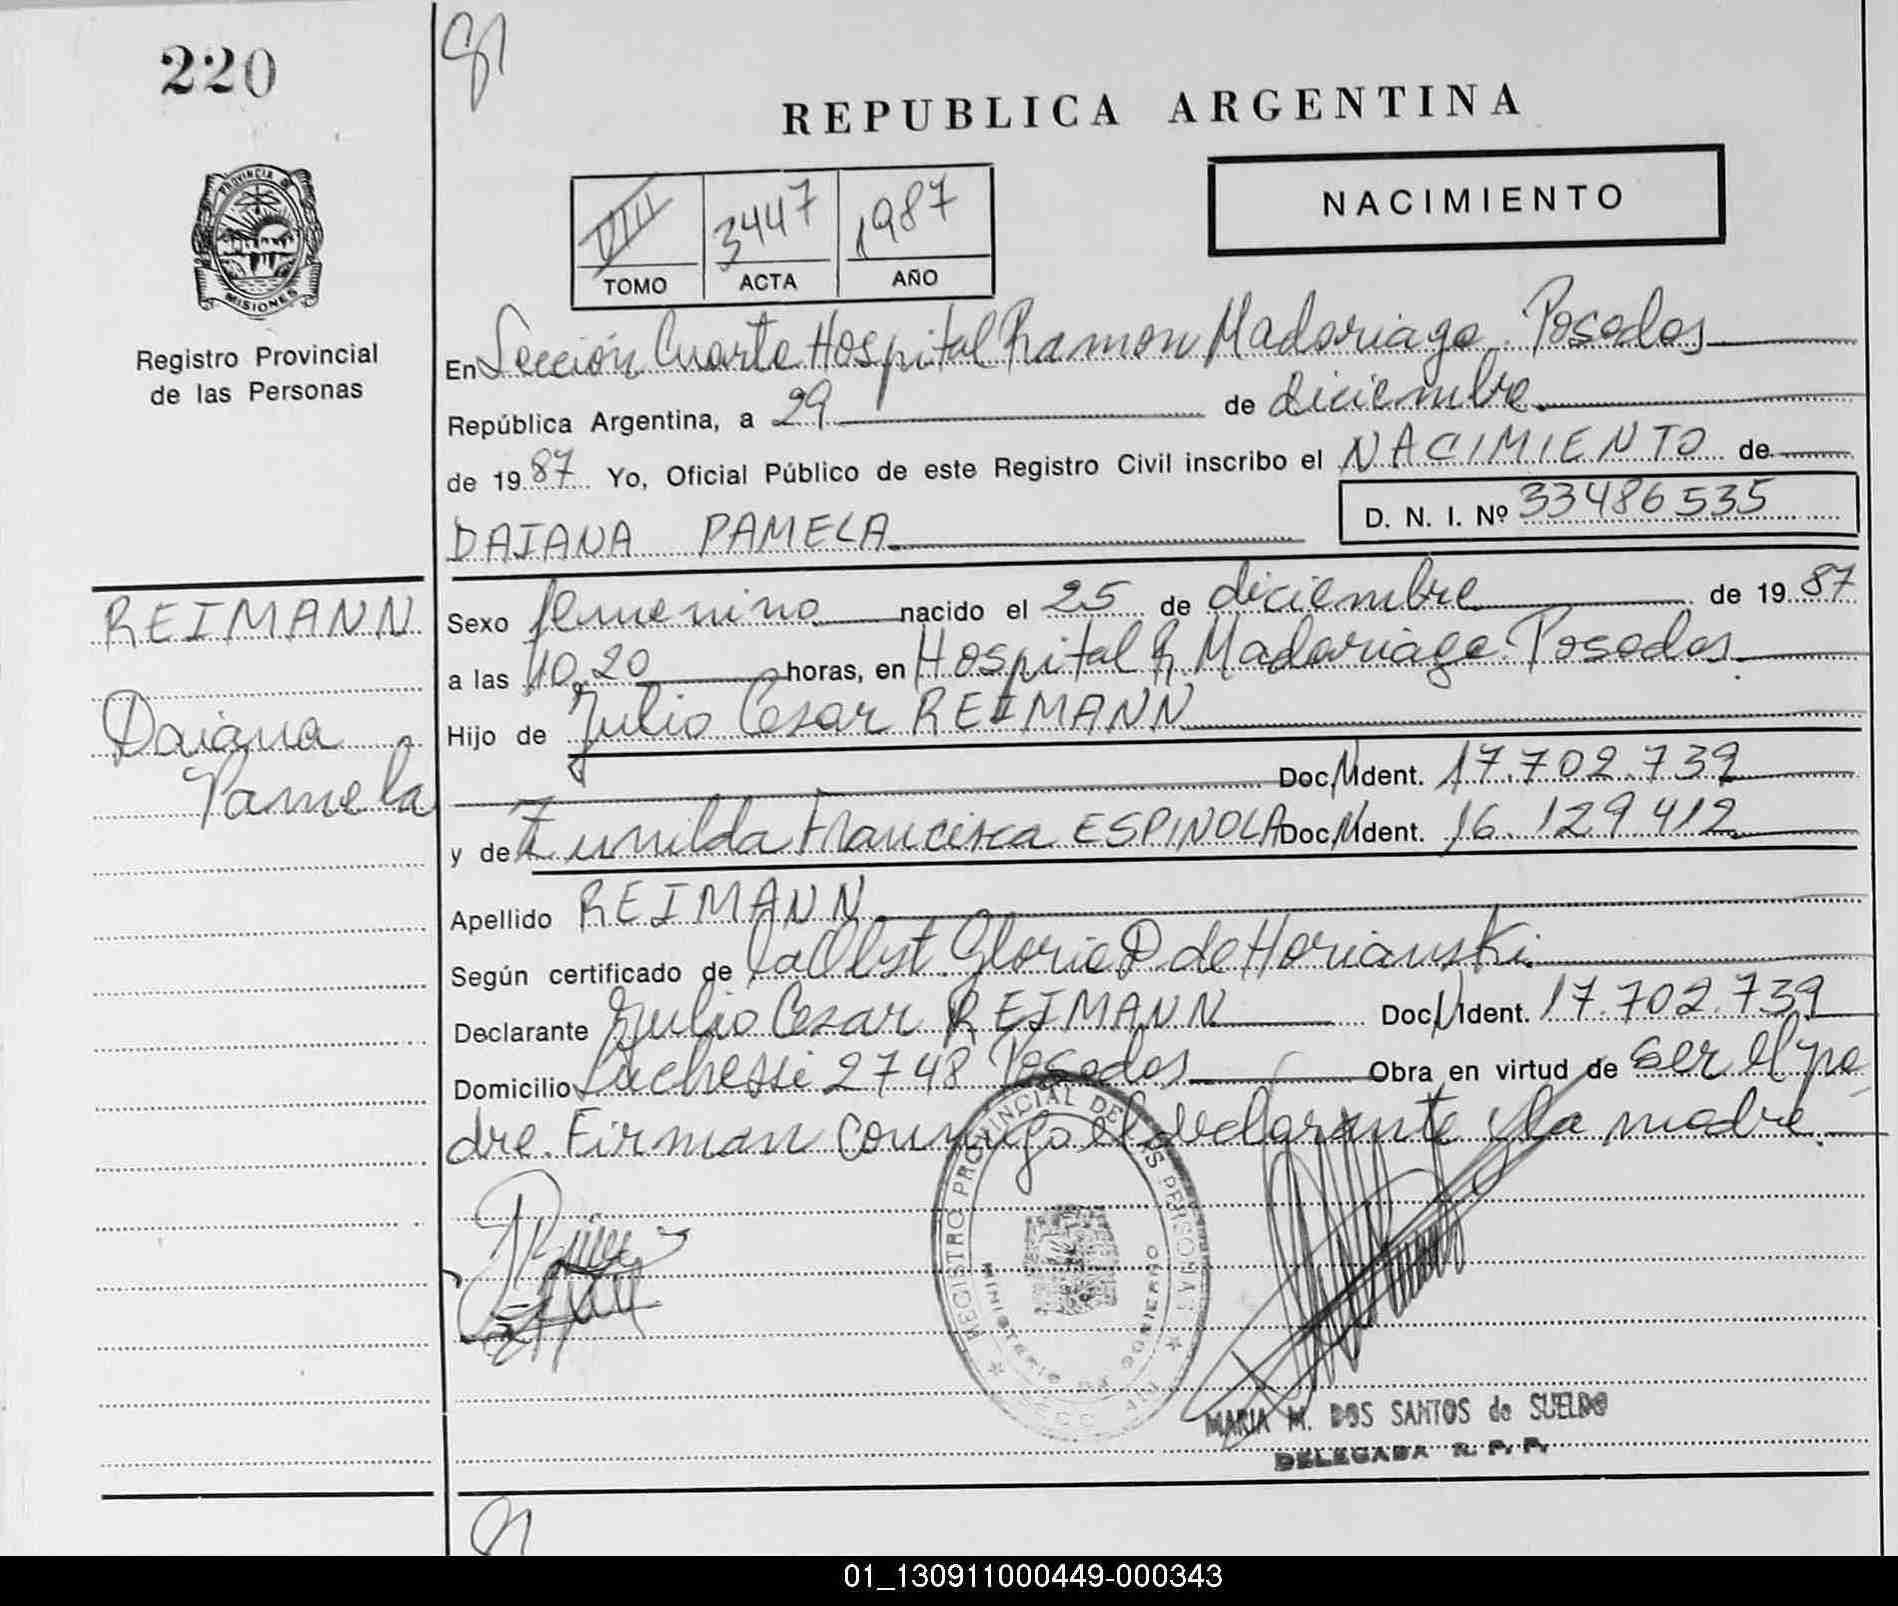 220
REPUBLICA ARGENTINA
PROVINCIA D
MISIONES
Registro Provincial
de las Personas
VIII 3447 1987
TOMO ACTA AÑO
NACIMIENTO
En Sección Cuarta Hospital Ramon Madariaga. Posadas
República Argentina, a 29 de diciembre
de 1987 Yo, Oficial Público de este Registro Civil inscribo el NACIMIENTO de
DAIANA PAMELA
D. N. I. Nº 33486535
REIMANN
Daiana
Pamela
Sexo femenino nacido el 25 de diciembre de 1987
a las 10,20 horas, en Hospital R. Madariaga. Posadas.
Hijo de Julio Cesar REIMANN
Doc. N Ident. 17.702.739
y de Zunilda Francisca ESPINOLA Doc. N Ident. 16.129.412
Apellido REIMANN
Según certificado de la Obst. Gloria D. de Horianski.
Declarante Julio Cesar REIMANN Doc. N Ident. 17.702.739
Domicilio Luchessi 2748 Posadas Obra en virtud de ser el pa
dre. Firman conmigo el declarante y la madre.
REGISTRO PROVINCIAL DE LAS PERSONAS
MINISTERIO DE GOBIERNO
MARIA M. DOS SANTOS de SUELDO
DELEGADA R. P. P.
01_130911000449-000343